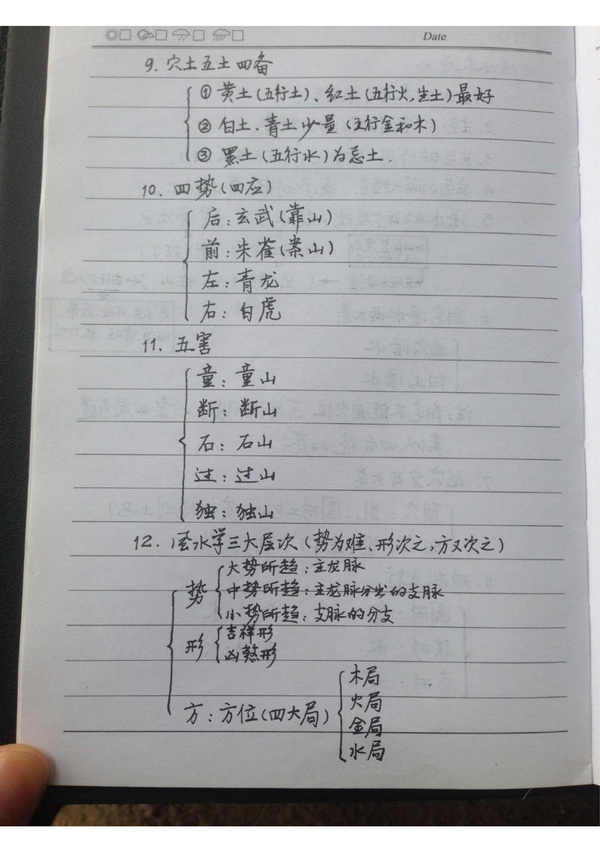 Date
9. 穴土五土四备
① 黄土(五行土)、红土(五行火,生土)最好
② 白土、青土少量 (五行金和木)
③ 黑土(五行水)为忌土.
10. 四势(四应)
后:玄武(靠山)
前:朱雀(案山)
左:青龙
右:白虎
11. 五害
童:童山
断:断山
石:石山
过:过山
独:独山
12. 风水学三大层次(势为难、形次之,方又次之)
势
大势所趋:主龙脉
中势所趋:主龙脉分出的支脉
小势所趋:支脉的分支
形
吉祥形
凶煞形
方:方位(四大局)
木局
火局
金局
水局